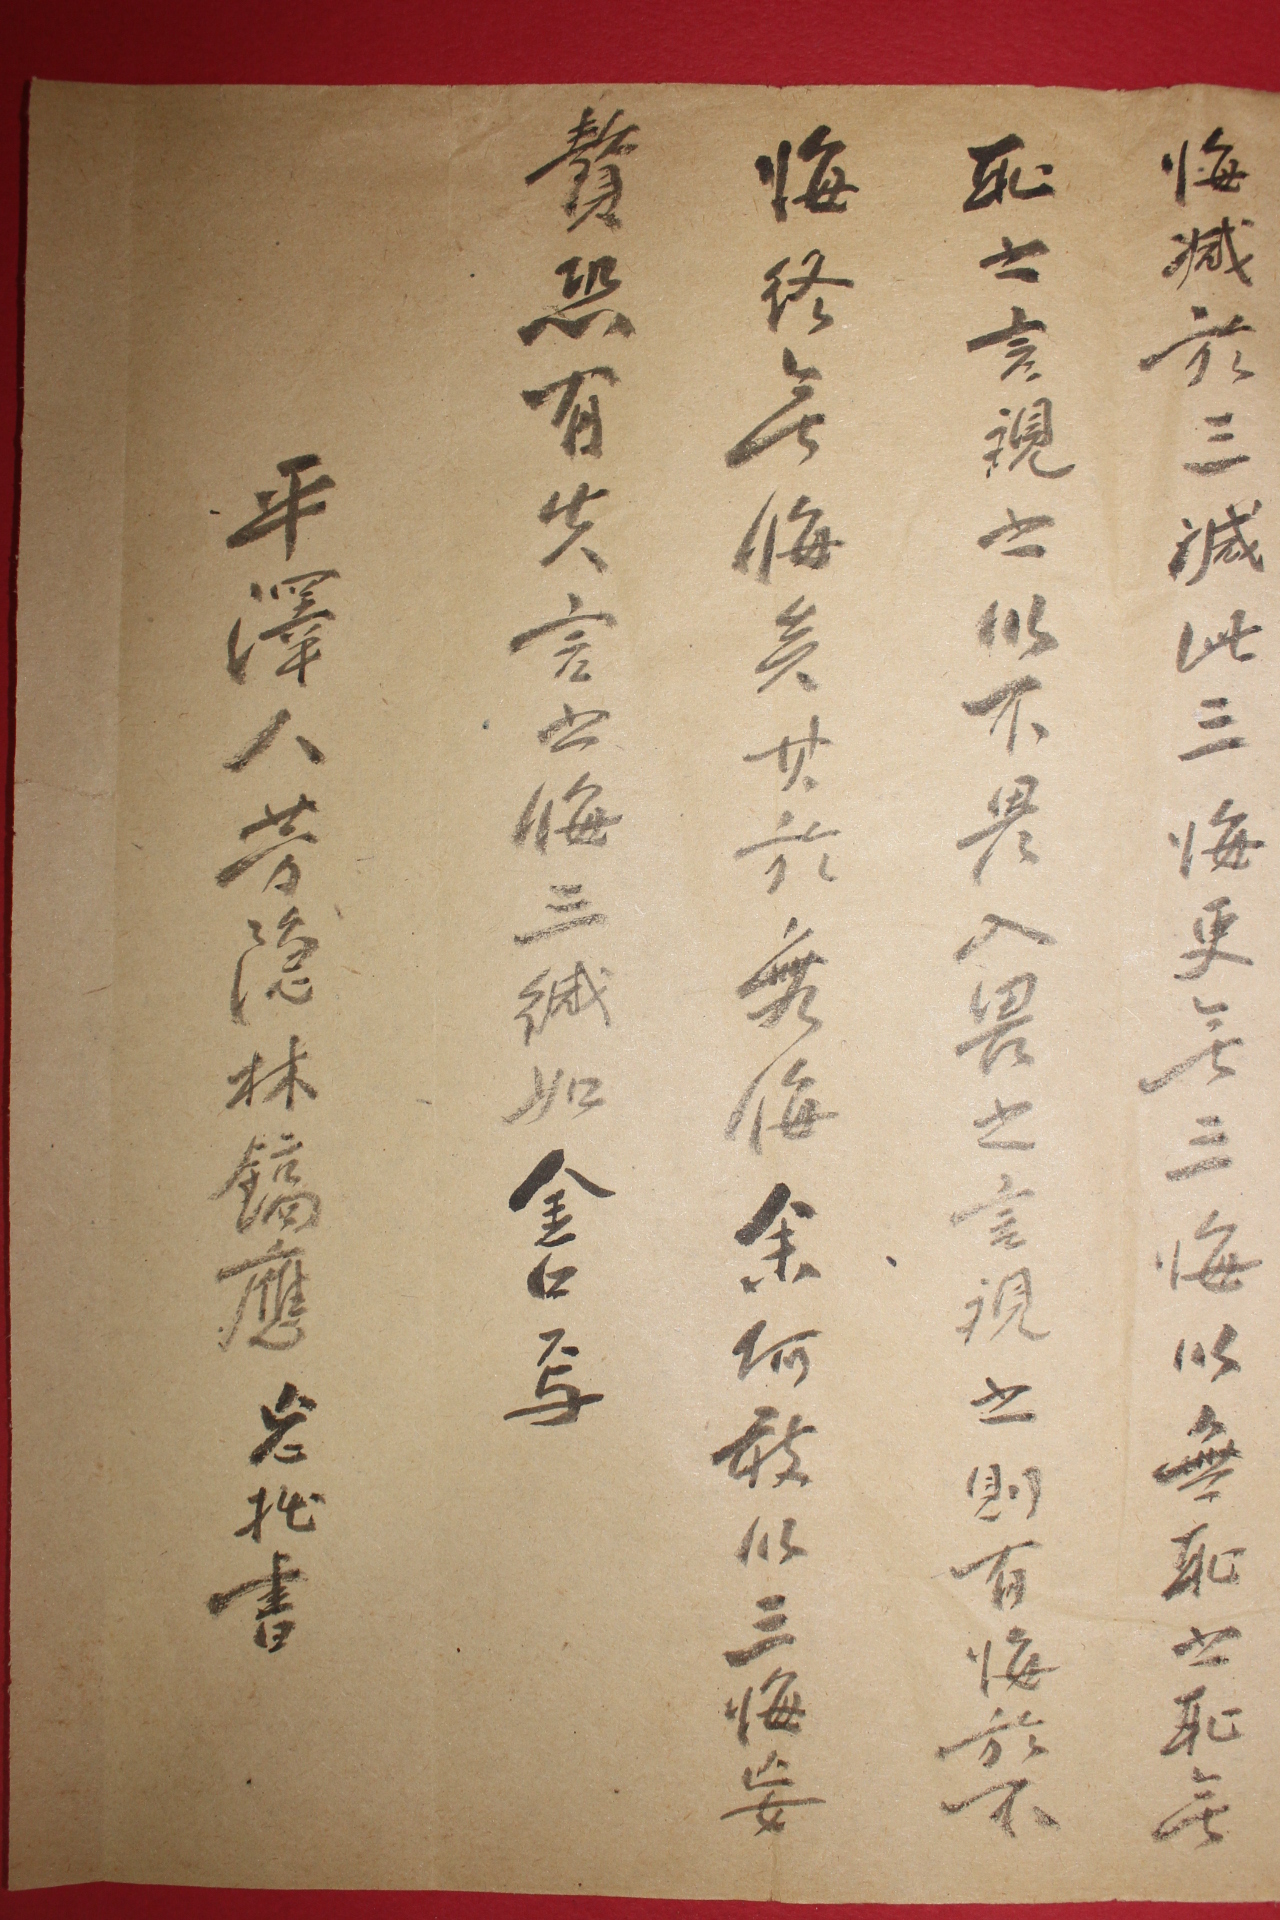 悔減於三緘此三悔更无三悔以無恥之恥无
恥之言視之似不畏入畏之言視之則有悔於不
悔終无悔矣其於無悔余何敢以三悔妄
贅恐有失言之悔三緘如金口亏
平澤人芳隱林鎬應 老拙書